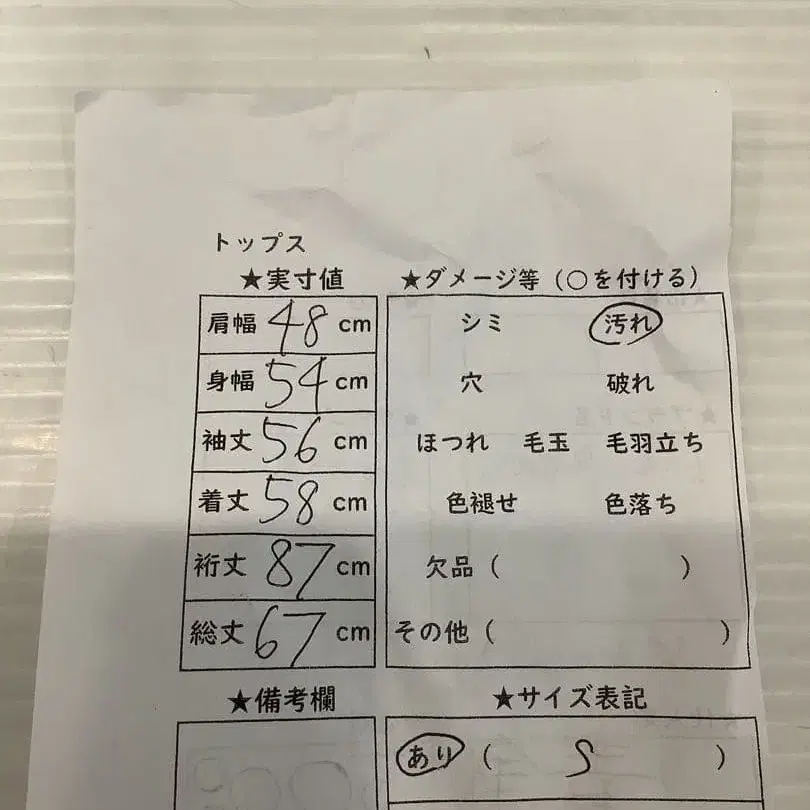 トップス
★実寸値
肩幅 48 cm
身幅 54 cm
袖丈 56 cm
着丈 58 cm
裄丈 87 cm
総丈 67 cm
★ダメージ等（○を付ける）
シミ 汚れ
穴 破れ
ほつれ 毛玉 毛羽立ち
色褪せ 色落ち
欠品（ ）
その他（ ）
★備考欄
★サイズ表記
あり（ S ）